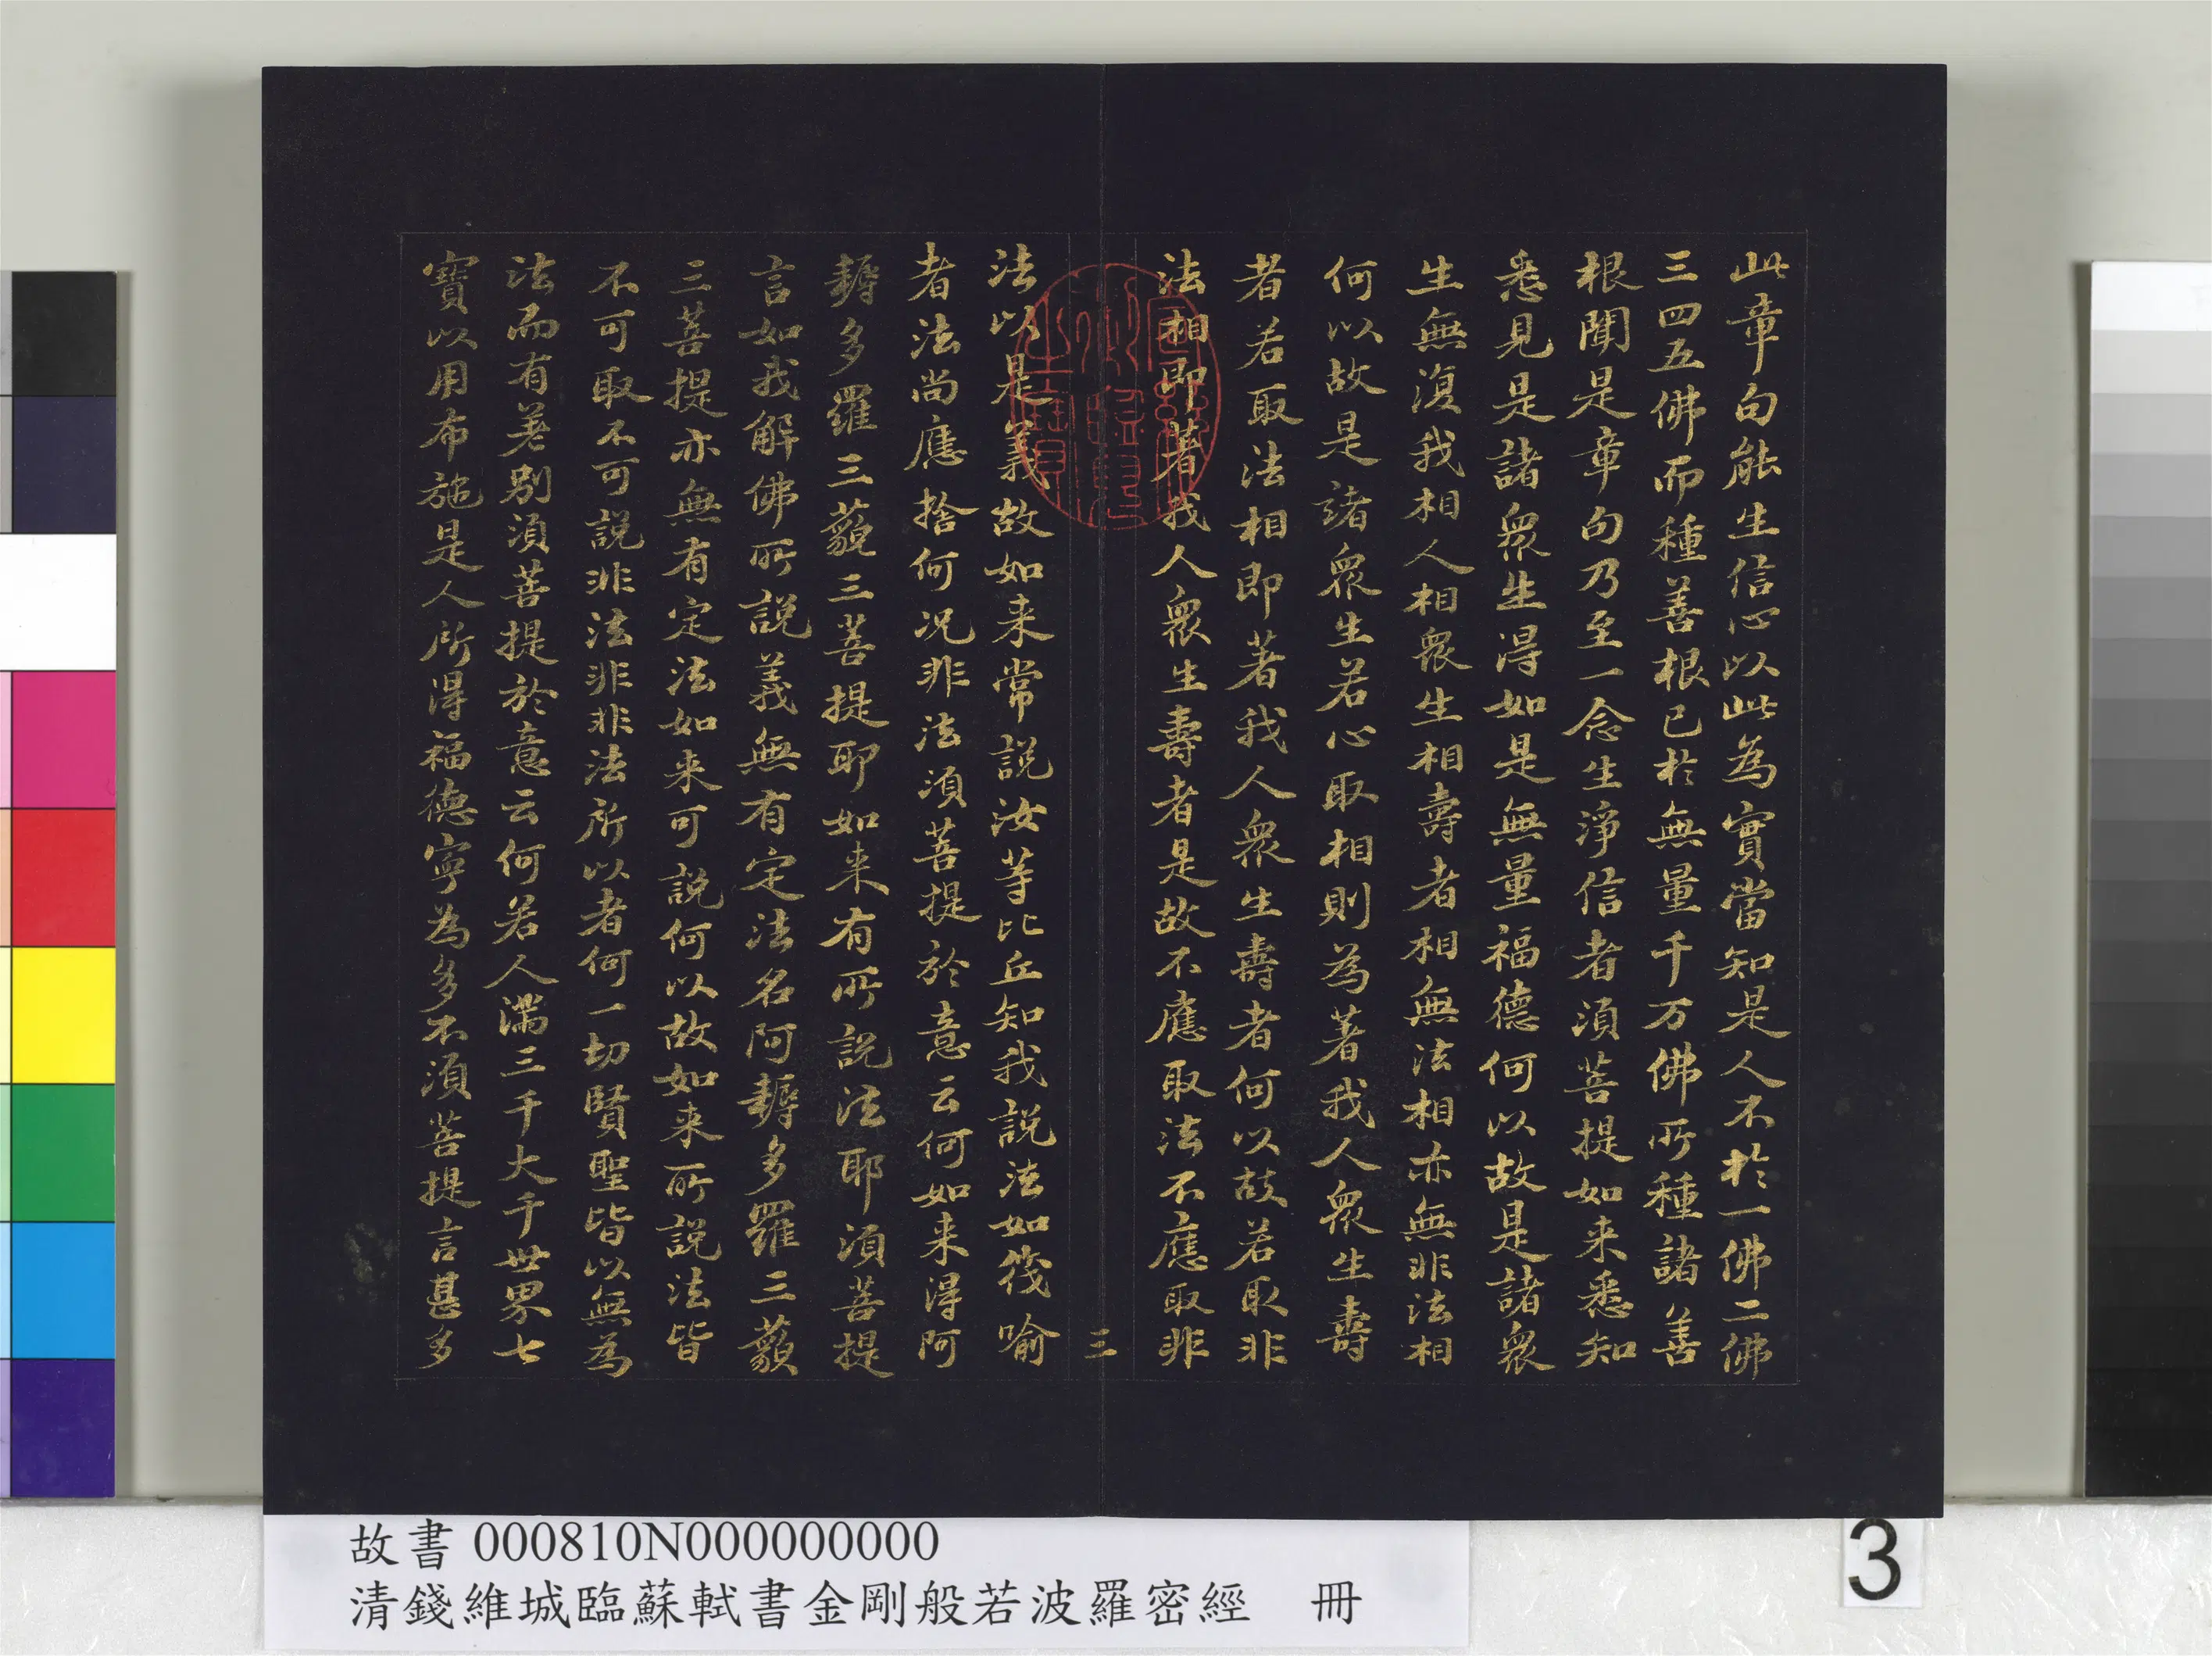 此章句能生信心以此為實當知是人不於一佛二佛
三四五佛而種善根已於無量千万佛所種諸善
根聞是章句乃至一念生淨信者須菩提如来悉知
悉見是諸衆生得如是無量福德何以故是諸衆
生無復我相人相衆生相壽者相無法相亦無非法相
何以故是諸衆生若心取相則為著我人衆生壽
者若取法相即著我人衆生壽者何以故若取非
法相即著我人衆生壽者是故不應取法不應取非
三
法以是義故如来常說汝等比丘知我說法如筏喻
者法尚應捨何况非法須菩提於意云何如来得阿
耨多羅三藐三菩提耶如来有所說法耶須菩提
言如我解佛所說義無有定法名阿耨多羅三藐
三菩提亦無有定法如来可說何以故如来所說法皆
不可取不可說非法非非法所以者何一切賢聖皆以無為
法而有差别須菩提於意云何若人滿三千大千世界七
寶以用布施是人所得福德寧為多不須菩提言甚多
故書 000810N000000000
清錢維城臨蘇軾書金剛般若波羅密經 冊
3